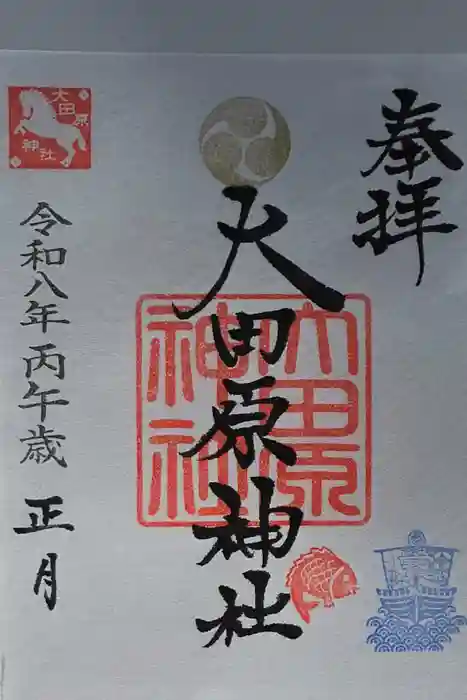 奉拝
大田原神社
大田原
神社
大田原
神社
令和八年丙午歳
正月